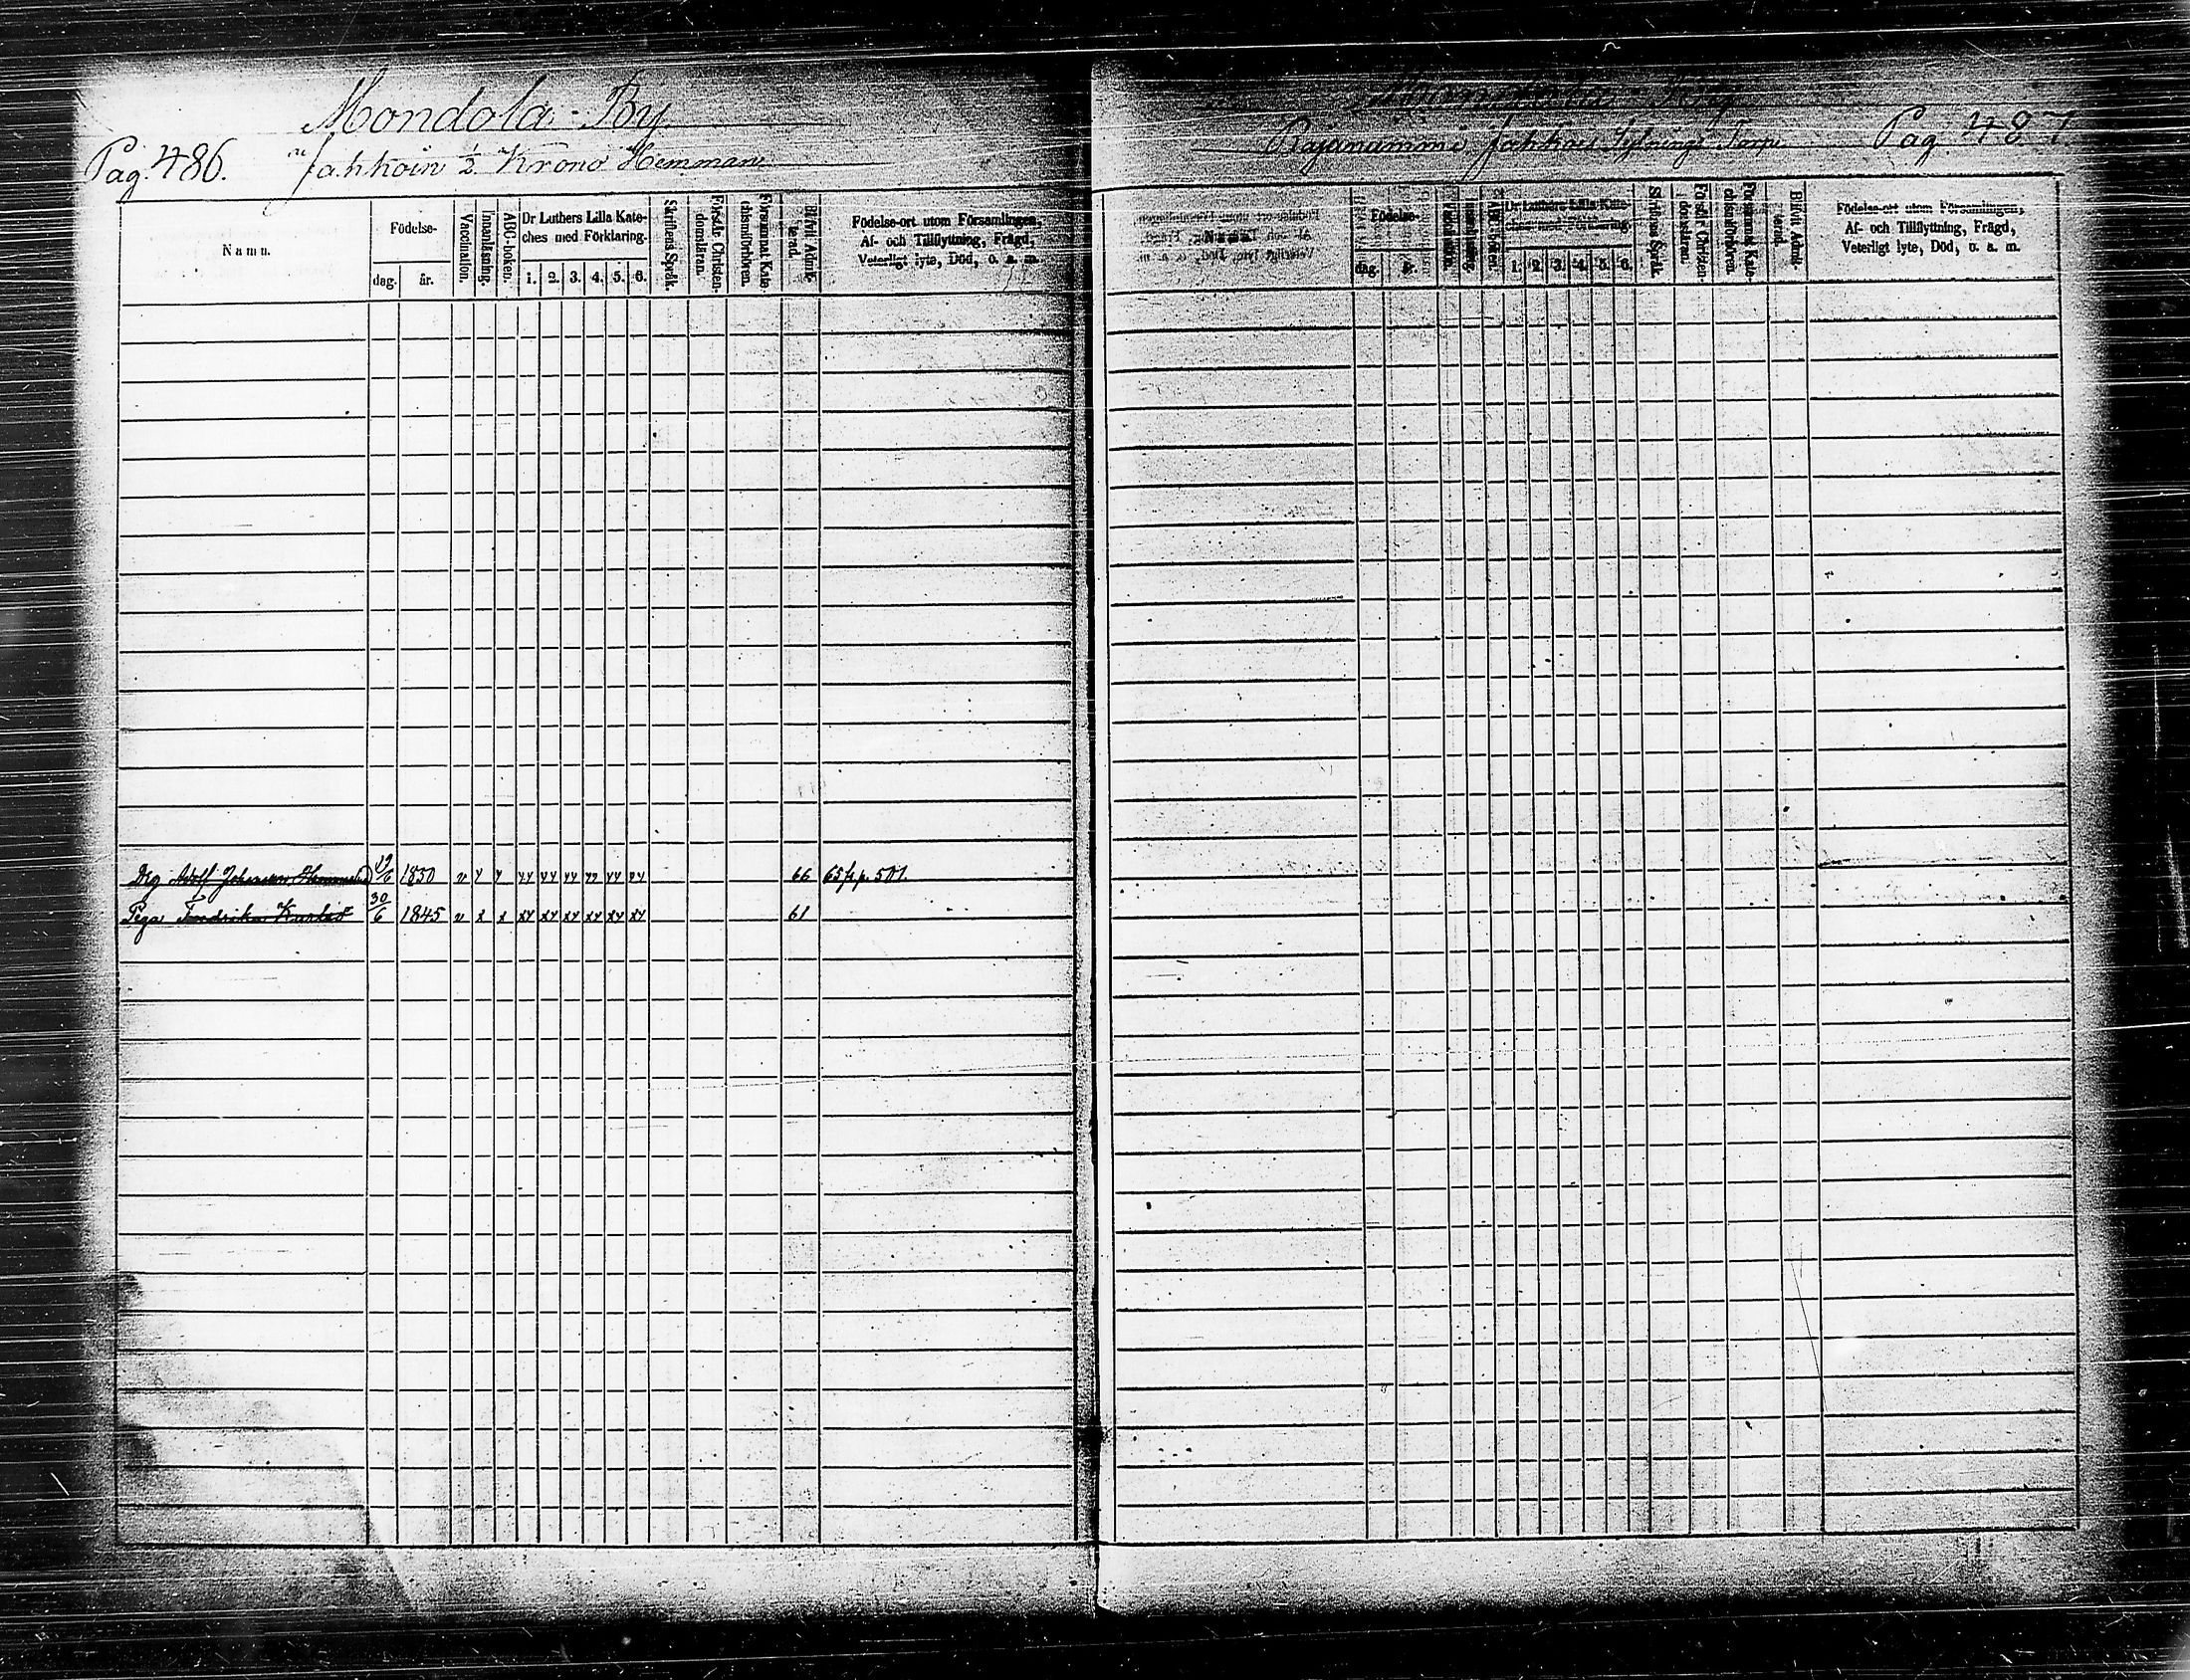 Mondola By
Pag. 486. Jahkoin 1/2 Krono Hemman
Namn.
Födelse-
dag. år.
Vaccination.
Innanläsning.
ABC-boken.
Dr Luthers Lilla Kate-
ches med Förklaring.
1. 2. 3. 4. 5. 6.
Skriftens Språk.
Förstår Christen-
domsläran.
Försummat Kate-
chismiförhören.
Blifvit Admit-
terad.
Födelse-ort utom Församlingen,
Af- och Tillflyttning, Frägd,
Veterligt lyte, Död, o. a. m.
Drg Adolf Johansson 19/6 1830 v y y yy yy yy yy yy yy 66 65 p. 501.
Piga Fredrika 30/6 1845 v x x xy xy xy xy xy xy 61
Mondola By
Rajanummi Jahkois Sytnings Torp Pag. 487.
Namn.
Födelse-
dag. år.
ABC-boken.
Dr Luthers Lilla Kate-
ches med Förklaring.
1. 2. 3. 4. 5. 6.
Skriftens Språk.
Förstår Christen-
domsläran.
Försummat Kate-
chismiförhören.
Blifvit Admit-
terad.
Födelse-ort utom Församlingen,
Af- och Tillflyttning, Frägd,
Veterligt lyte, Död, o. a. m.